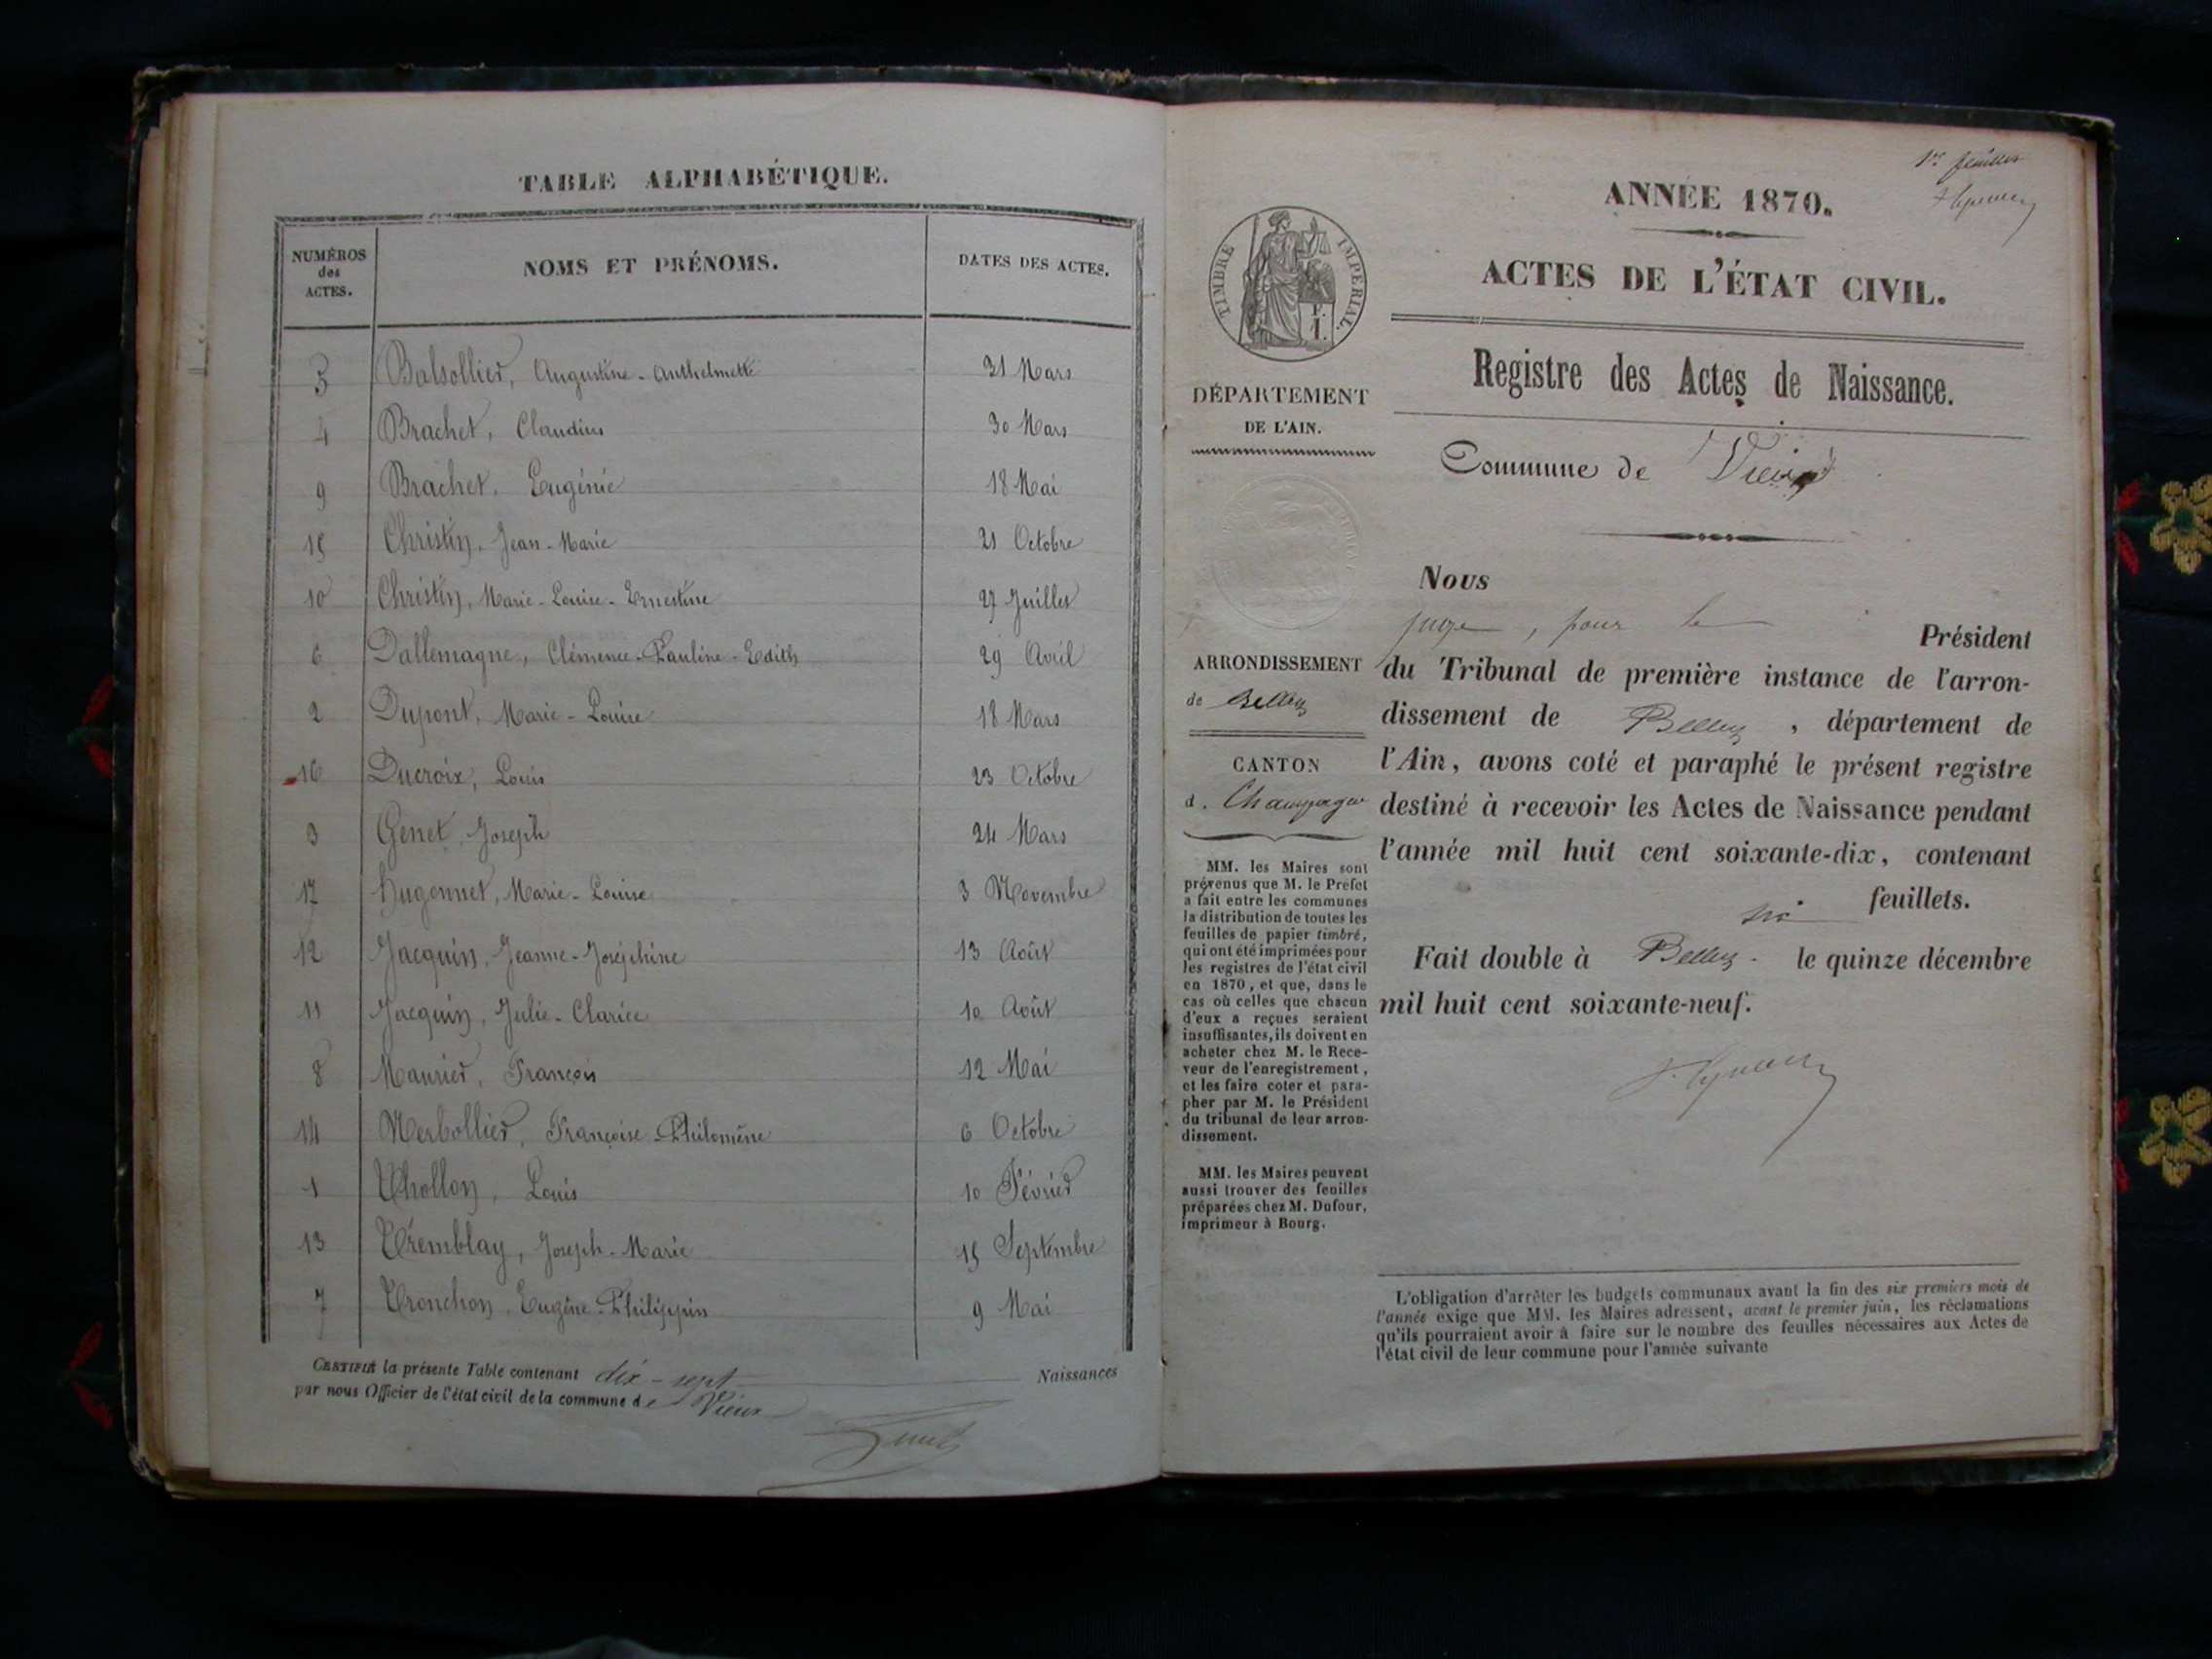 TABLE ALPHABÉTIQUE.
NUMÉROS
des
ACTES.
NOMS ET PRÉNOMS.
DATES DES ACTES.
5 Balsollier, Augustine-Anthelmette 31 Mars
4 Brachet, Claudius 30 Mars
9 Brachet, Eugénie 18 Mai
15 Christin, Jean-Marie 21 Octobre
10 Christin, Marie-Louise-Ernestine 27 Juillet
6 Dallemagne, Clémence-Pauline-Edith 29 Avril
2 Dupont, Marie-Louise 18 Mars
16 Ducroix, Louis 23 Octobre
3 Genet Joseph 24 Mars
17 Hugonnet, Marie-Louise 3 Novembre
12 Jacquin, Jeanne-Joséphine 13 Août
11 Jacquin, Julie-Clarice 10 Août
8 Maurier, François 12 Mai
14 Merbollier, Françoise-Philomène 6 Octobre
1 Thollon, Louis 10 Février
13 Tremblay, Joseph-Marie 15 Septembre
7 Tronchon, Eugène-Philippin 9 Mai
CERTIFIÉ la présente Table contenant dix-sept Naissances
par nous Officier de l'état civil de la commune de Vieu
1er feuillet
ANNÉE 1870.
ACTES DE L'ÉTAT CIVIL.
Registre des Actes de Naissance.
Commune de Vieu
TIMBRE IMPÉRIAL.
DÉPARTEMENT
DE L'AIN.
ARRONDISSEMENT
de Belley
CANTON
d. Champagne
MM. les Maires sont
prévenus que M. le Préfet
a fait entre les communes
la distribution de toutes les
feuilles de papier timbré,
qui ont été imprimées pour
les registres de l'état civil
en 1870, et que, dans le
cas où celles que chacun
d'eux a reçues seraient
insuffisantes, ils doivent en
acheter chez M. le Rece-
veur de l'enregistrement,
et les faire coter et para-
pher par M. le Président
du tribunal de leur arron-
dissement.
MM. les Maires peuvent
aussi trouver des feuilles
préparées chez M. Dufour,
imprimeur à Bourg.
Nous
juge, pour le Président
du Tribunal de première instance de l'arron-
dissement de Belley, département de
l'Ain, avons coté et paraphé le présent registre
destiné à recevoir les Actes de Naissance pendant
l'année mil huit cent soixante-dix, contenant
six feuillets.
Fait double à Belley le quinze décembre
mil huit cent soixante-neuf.
L'obligation d'arrêter les budgets communaux avant la fin des six premiers mois de
l'année exige que MM. les Maires adressent, avant le premier juin, les réclamations
qu'ils pourraient avoir à faire sur le nombre des feuilles nécessaires aux Actes de
l'état civil de leur commune pour l'année suivante